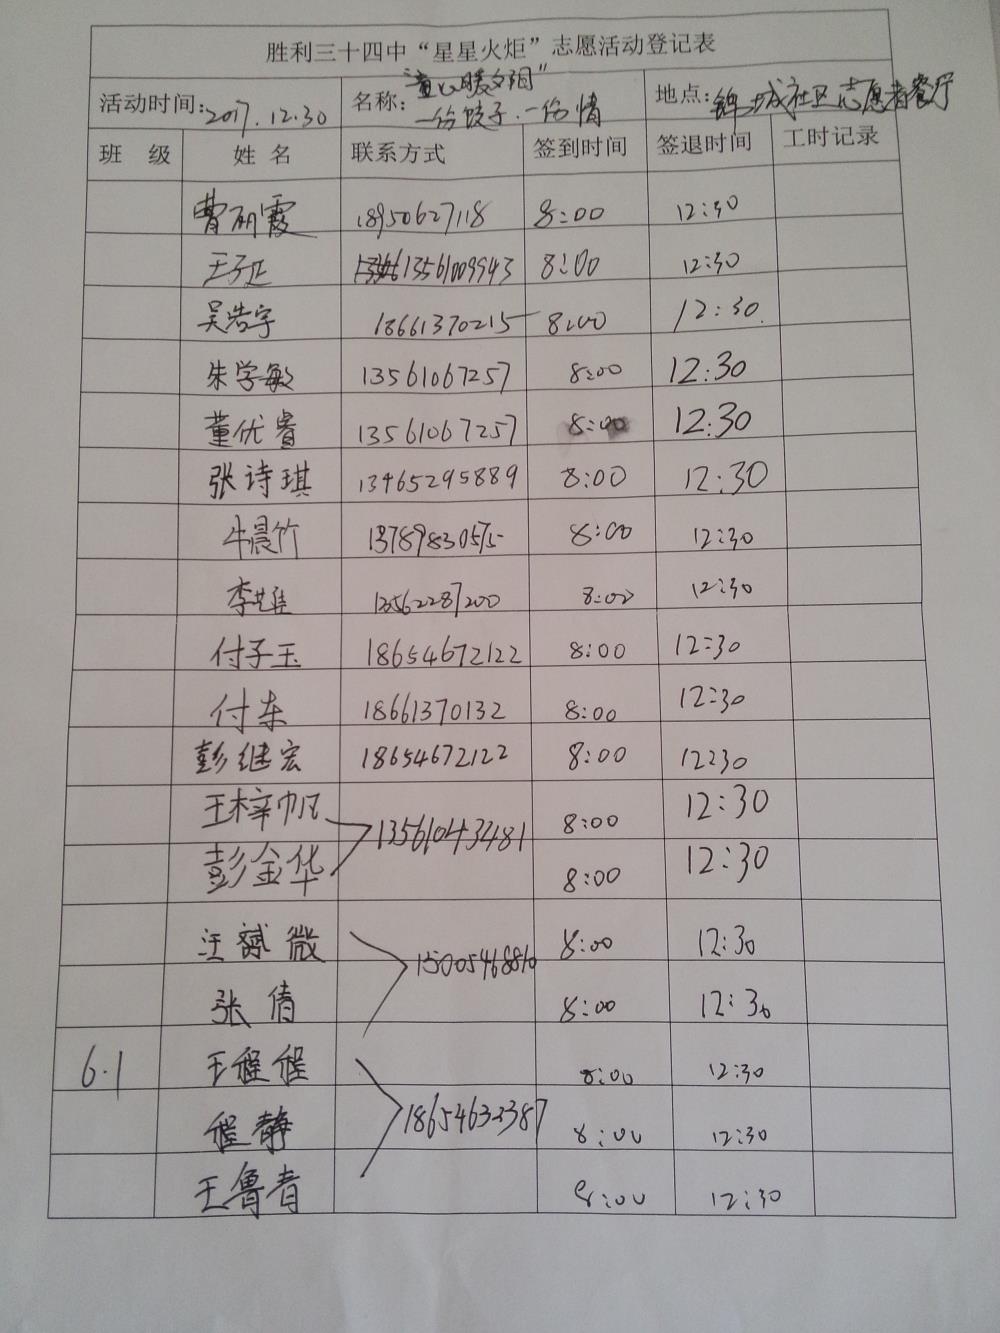 胜利三十四中“星星火炬”志愿活动登记表
活动时间：2017.12.30 名称：“童心暖夕阳” 一份饺子.一份情 地点：锦城社区志愿者餐厅
班 级 姓 名 联系方式 签到时间 签退时间 工时记录
曹丽霞 18950627118 8:00 12:30
王子正 13561009943 8:00 12:30
吴浩宇 18661370215 8:00 12:30
朱学敏 13561067257 8:00 12:30
董优睿 13561067257 8:00 12:30
张诗琪 13465295889 8:00 12:30
牛晨竹 13789830575 8:00 12:30
李 13562287200 8:00 12:30
付子玉 18654672122 8:00 12:30
付东 18661370132 8:00 12:30
彭继宏 18654672122 8:00 12:30
王梓帆 13561043481 8:00 12:30
彭金华 8:00 12:30
汪斌微 15005468810 8:00 12:30
张倩 8:00 12:30
6.1 王程程 18654633387 8:00 12:30
程静 8:00 12:30
王鲁青 8:00 12:30